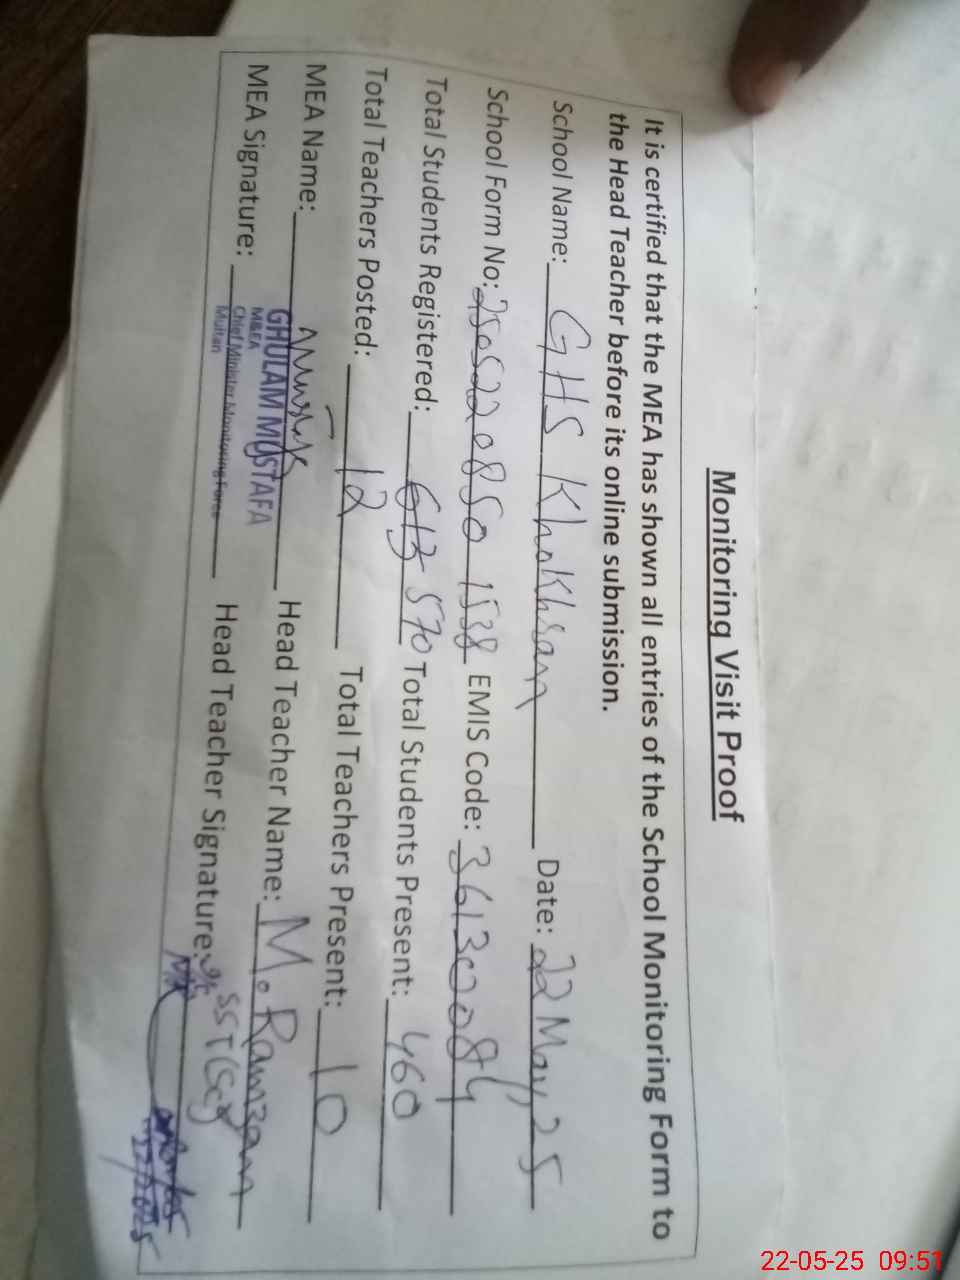 Monitoring Visit Proof
It is certified that the MEA has shown all entries of the School Monitoring Form to
the Head Teacher before its online submission.
School Name: GHS Khokhran Date: 22 May, 25
School Form No: 25052208501538 EMIS Code: 36130084
Total Students Registered: 613 570 Total Students Present: 460
Total Teachers Posted: 12 Total Teachers Present: 10
MEA Name: GHULAM MUSTAFA Head Teacher Name: M. Ramzan
M&EA
MEA Signature: Chief Minister Monitoring Force Head Teacher Signature: SST
Multan
22-05-25 09:51